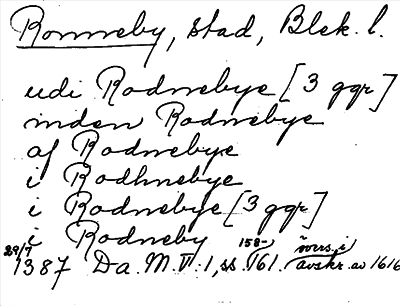 Ronneby, stad, Blek. l.
udi Rodnebye [3 ggr]
inden Rodnebye
af Rodnebye
i Rodhnebye
i Rodnebye [3 ggr]
i Rodneby
29/7 1387 Da. M. VI. 1, ss 158-, 161. i avskr. av 1616